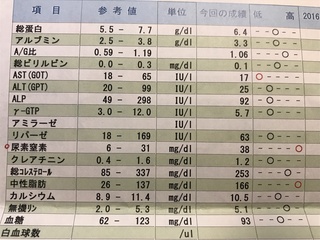 項目 参考値 単位 今回の成績 低 高 2016
総蛋白 5.5 - 7.7 g/dl 6.4 - - ○ - -
アルブミン 2.5 - 3.8 g/dl 3.3 - - ○ - -
A/G比 0.59 - 1.19 1.06 - - - ○ -
総ビリルビン 0.0 - 0.3 mg/dl 0.1 - - ○ - -
AST(GOT) 18 - 65 IU/l 17 ○ - - - -
ALT(GPT) 20 - 99 IU/l 25 - ○ - - -
ALP 49 - 298 IU/l 92 - ○ - - -
γ-GTP 3.0 - 12.0 IU/l 5.7 - ○ - - -
アミラーゼ IU/l
リパーゼ 18 - 169 IU/l 63 - ○ - - -
尿素窒素 6 - 31 mg/dl 38 - - - - ○
クレアチニン 0.4 - 1.6 mg/dl 1.2 - - - ○ -
総コレステロール 85 - 337 mg/dl 253 - - - ○ -
中性脂肪 26 - 137 mg/dl 166 - - - - ○
カルシウム 8.9 - 11.4 mg/dl 10.5 - - ○ - -
無機リン 2.0 - 5.3 mg/dl 5.1 - - - ○ -
血糖 62 - 123 mg/dl 93 - - ○ - -
白血球数 /ul